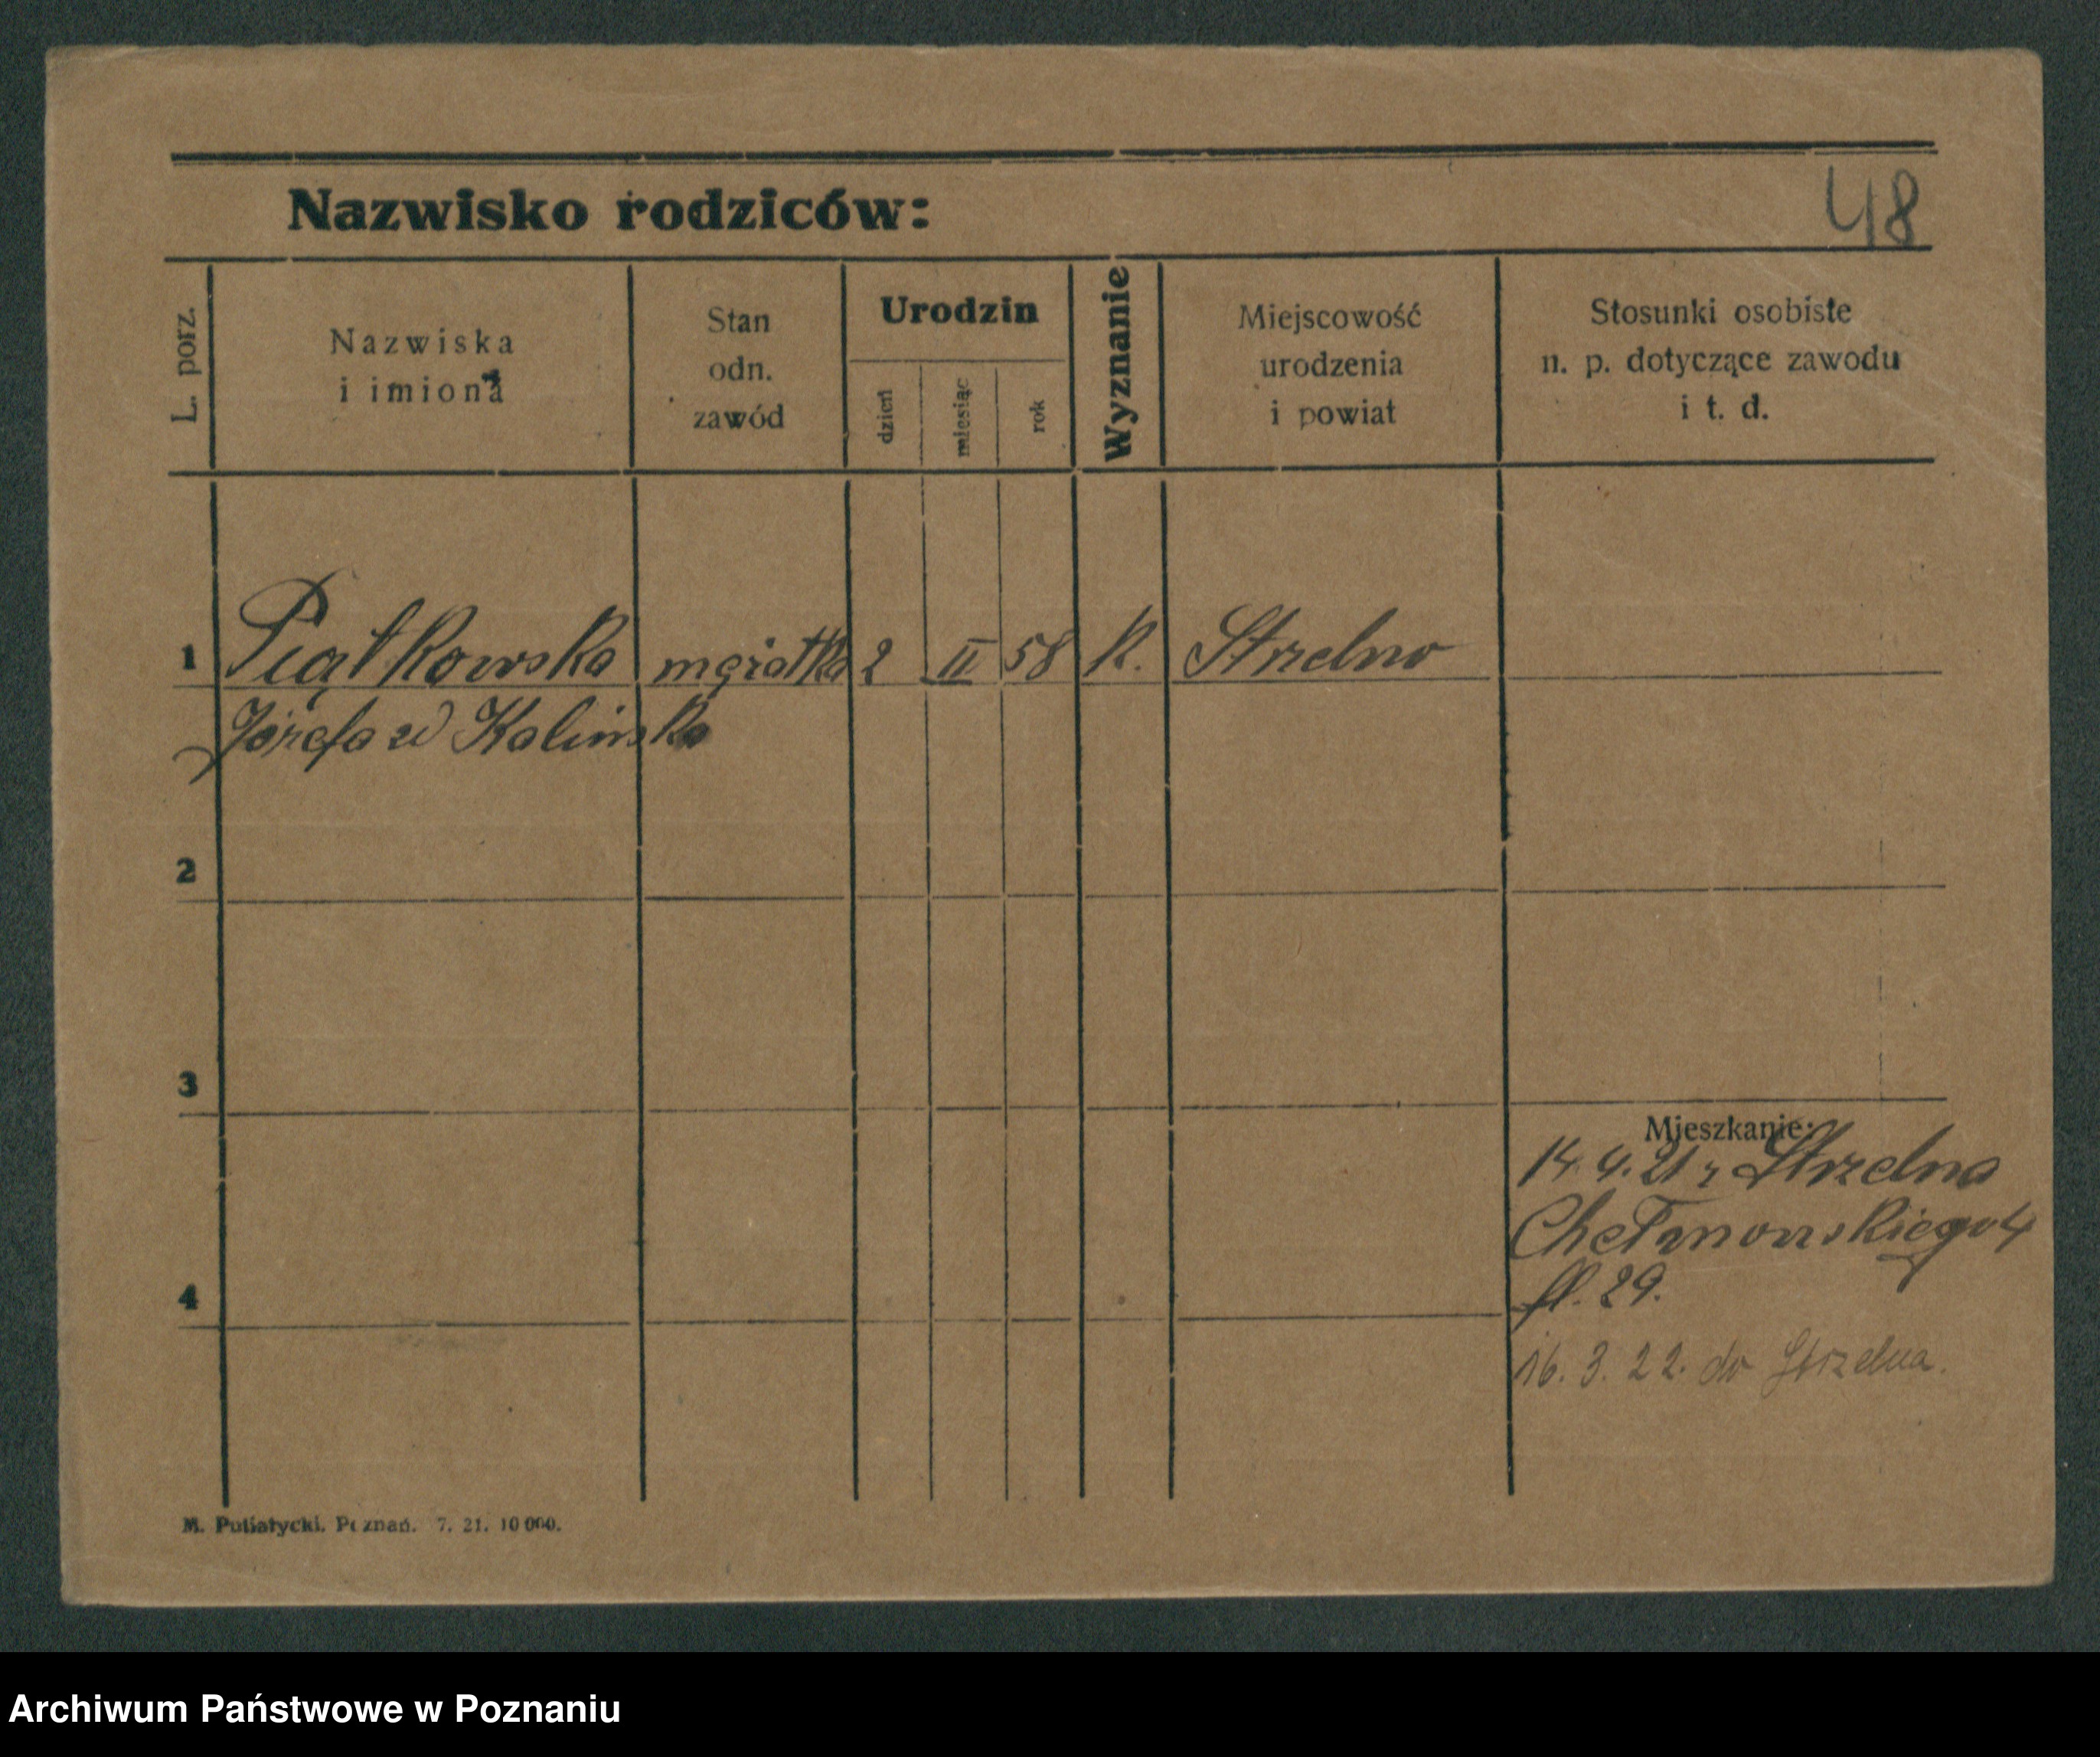 Nazwisko rodziców:
48
L. porz.
Nazwiska
i imiona
Stan
odn.
zawód
Urodzin
dzień
miesiąc
rok
Wyznanie
Miejscowość
urodzenia
i powiat
Stosunki osobiste
n. p. dotyczące zawodu
i t. d.
1 Piątkowska mężatka 2 II 58 k. Strzelno
Józefa Kalinska
2
3
4
Mieszkanie:
14. 4. 21 z Strzelna
Chełmonskiego 4
16. 3. 22. do Strzelna.
M. Putiatycki. Poznań. 7. 21. 10 000.
Archiwum Państwowe w Poznaniu